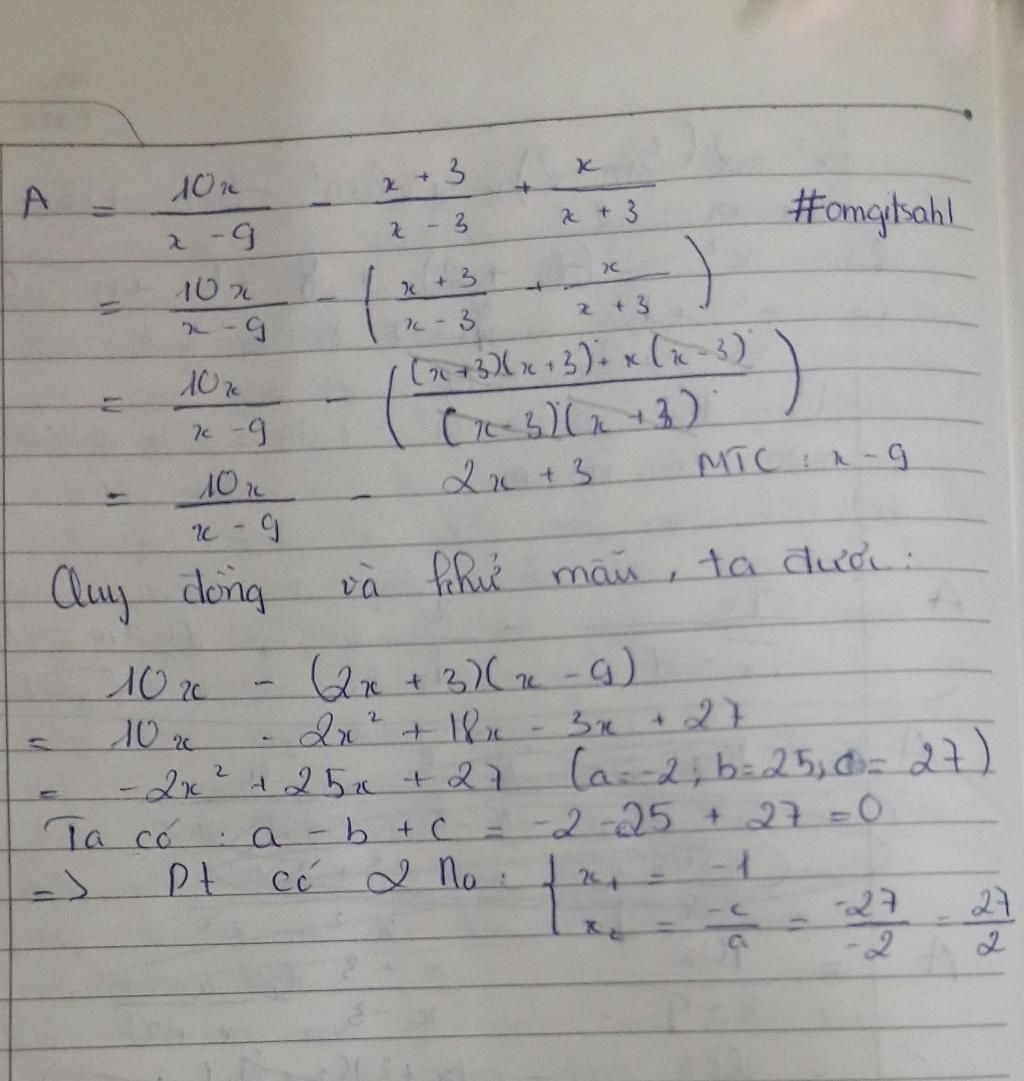 A = \frac{10x}{x - 9} - \frac{x + 3}{x - 3} + \frac{x}{x + 3} #omgitsahl
= \frac{10x}{x - 9} - \left( \frac{x + 3}{x - 3} + \frac{x}{x + 3} \right)
= \frac{10x}{x - 9} - \left( \frac{(x + 3)(x + 3) + x(x - 3)}{(x - 3)(x + 3)} \right)
= \frac{10x}{x - 9} - 2x + 3 MTC : x - 9
Quy đồng và khử mẫu, ta được :
10x - (2x + 3)(x - 9)
= 10x - 2x² + 18x - 3x + 27
= -2x² + 25x + 27 (a = -2 ; b = 25, c = 27)
Ta có : a - b + c = -2 - 25 + 27 = 0
=> Pt có 2 No : { x₁ = -1
x₂ = \frac{-c}{a} = \frac{-27}{-2} = \frac{27}{2}